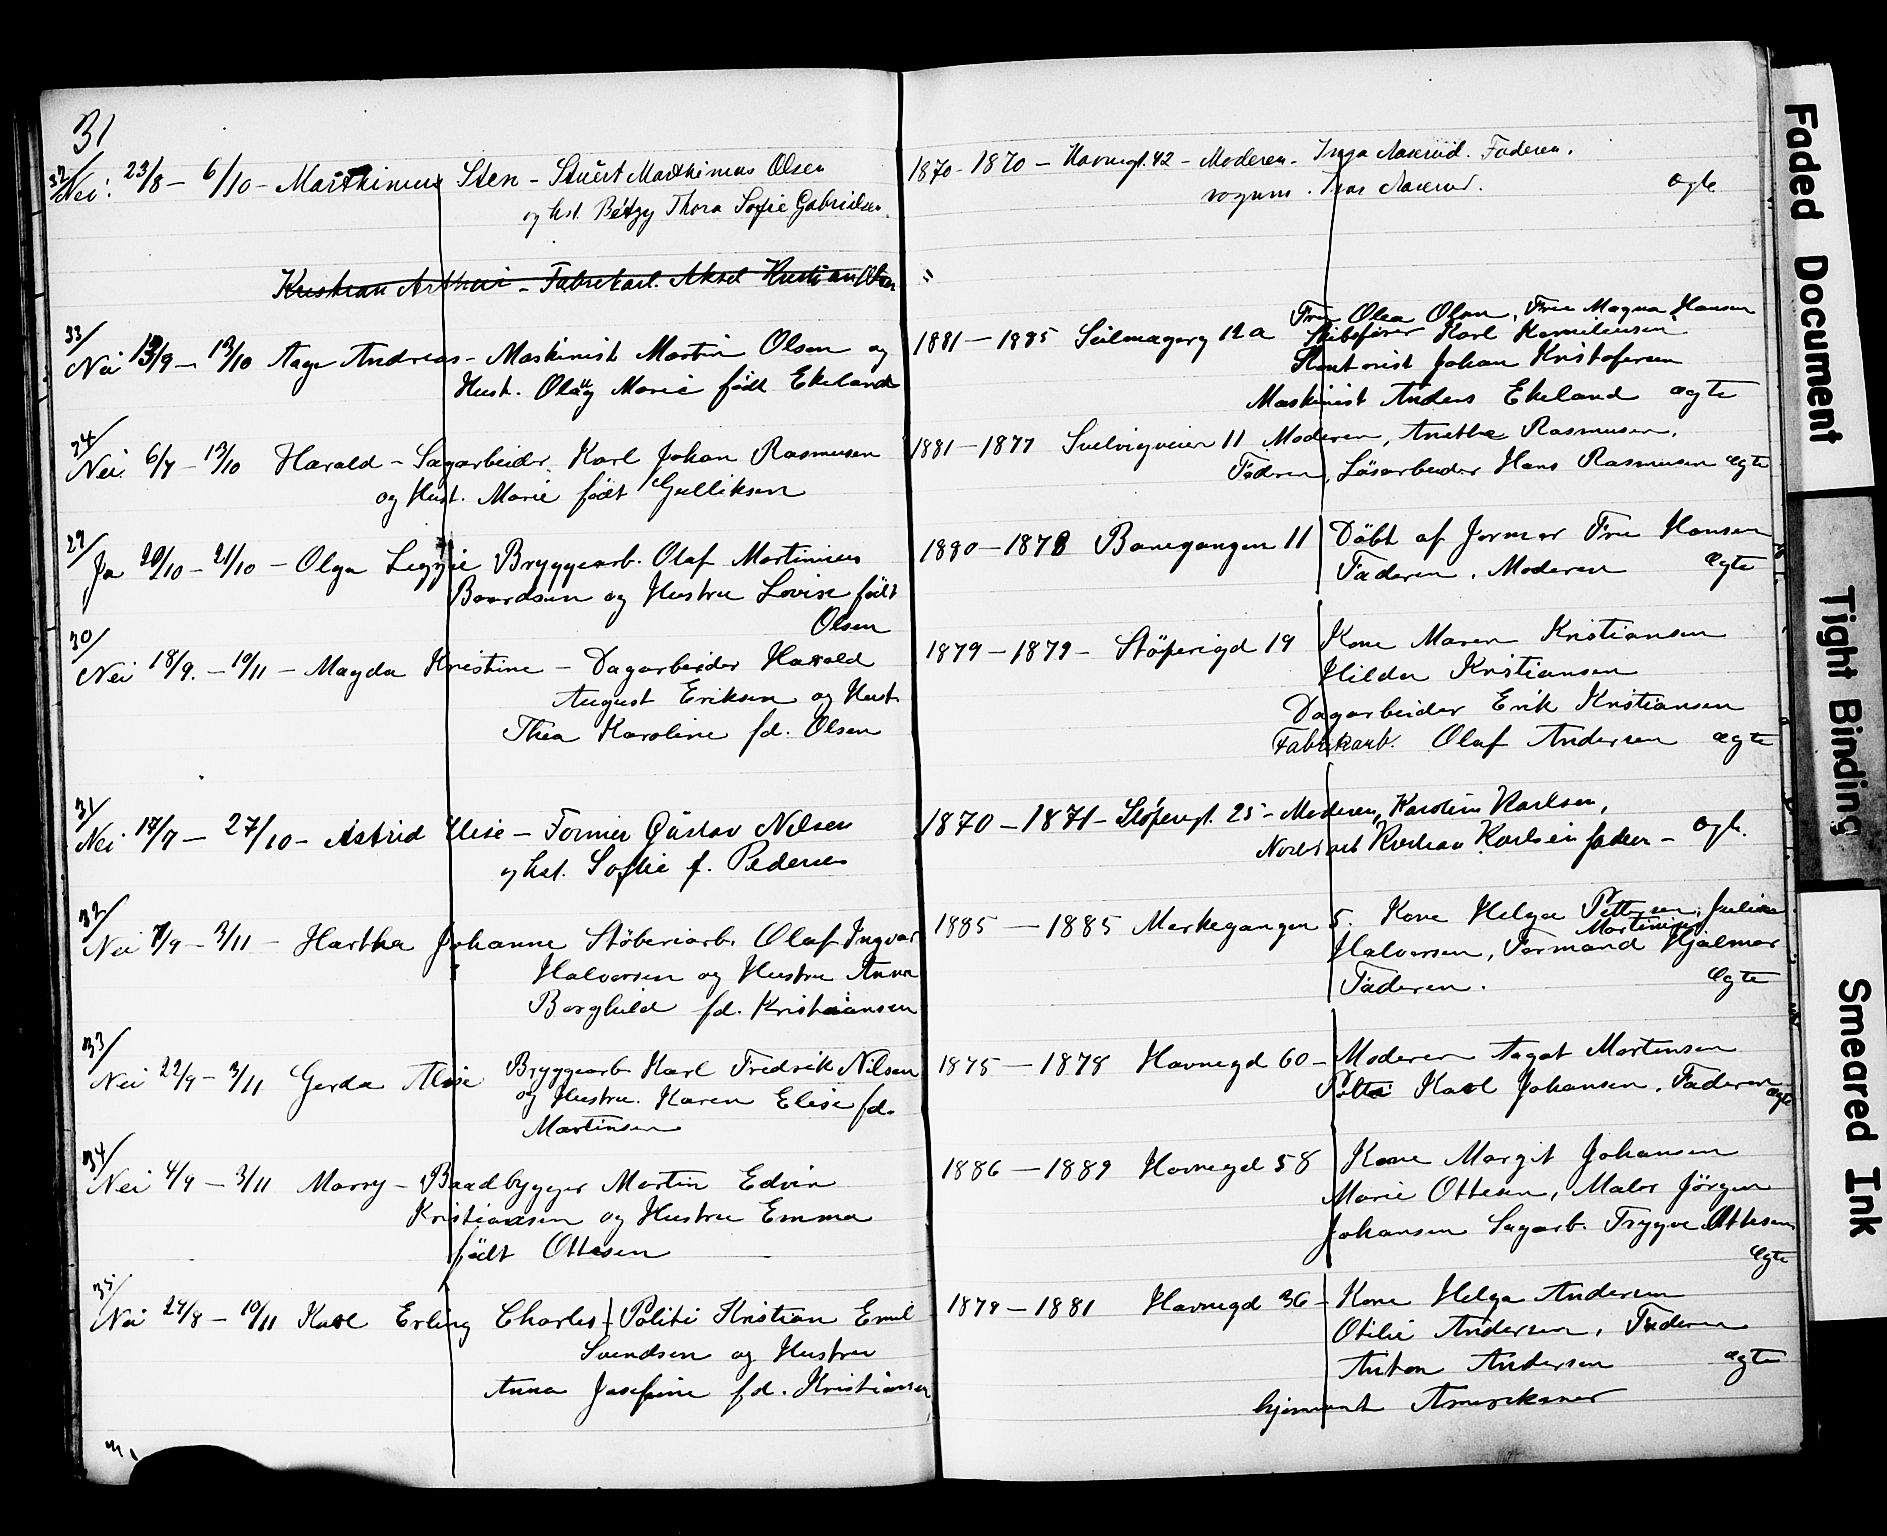 31
32/ Nei. 23/8 – 6/10 – Marthinius Sten – Stuert Marthinius Olsen 1870 – 1870 – Havnegt. 42 – Moderen – Inga Aaserud. Faderen.
og hst. Betzy Thora Sofie Gabrielsen. vognm. Aaserud. ægte
Kristian Arthur – Fabrikarb. Aksel Kristian Olsen "
Fru Olea Olsen, Fru Magna Hansen
33/ Nei 13/9 – 13/10 Aage Andreas – Maskinist Martin Olsen og 1881 – 1885 Seilmagerg 12a Skibsfører Karl Korniliusen
Hust. Olaug Marie født Ekeland Kontorist Johan Kristofersen
Maskinist Anders Ekeland ægte
24/ Nei 6/7 – 13/10 Harald – Sagarbeider Karl Johan Rasmusen 1881 – 1877 Svelvigveien 11 Moderen, Anethe Rasmusen,
og Hust. Marie født Gulliksen Fadren, Løsarbeider Hans Rasmusen ægte
29/ Ja 20/10 – 21/10 – Olga Bryggearb. Olaf Martinius 1880 – 1878 Banegangen 11 Döbt af Jormor Fru Hansen
Baardsen og Hustru Lovise født Faderen, Moderen ægte
Olsen
30/ Nei 18/9. – 10/11 – Magda Kristine – Dagarbeider Harald 1879 – 1879 – Stöperigd 19 Kone Maren Kristiansen
August Eriksen og Hust. Hilda Kristiansen
Thea Karoline fd. Olsen Dagarbeider Erik Kristiansen
Fabrikarb. Olaf Andersen ægte
31/ Nei 17/7 – 27/10 – Astrid Elise – Former Gustav Nilsen 1870 – 1871 – Stöpergt. 25 – Moderen, Karoline Karlsen,
og hst. Sofie f. Pedersen Kristian Karlsen faderen – ægte.
32/ Nei 7/9 – 3/11 – Hartha Johanne Stöberiarb. Olaf Ingvar 1885 – 1885 Merkegangen 5. Kone Helga Pettersen, Julie
Martinsen
Halvorsen og Hustru Anna Halvorsen, Formand Hjalmar
Borghild fd. Kristiansen Faderen. ægte
33/ Nei 22/9 – 3/11 Gerda Alise Bryggearb Karl Fredrik Nilsen 1875 – 1878 Havnegd 60 – Moderen Aagot Martensen
og Hustru. Karen Elise fd. Karl Johansen, Faderen ægte
Martinsen
34/ Nei 4/9 – 3/11 Marry – Baadbygger Martin Edvin 1886 – 1889 Havnegd 58 Kone Margit Johansen
Kristiansen og Hustru Emma Marie Ottesen, Maler Jörgen
født Ottesen Johansen Sagarb. Trygve Ottesen
ægte
35/ Nei 27/8 – 10/11 Karl Erling Charles – Politi Kristian Emil 1878 – 1881 Havnegd 36 – Kone Helga Andersen
Svendsen og Hustru Otilie Andersen, Faderen
Anna Josefine fd. Kristiansen Anton Andersen ægte
hjemvent Amerikaner
Faded Document
Tight Binding
Smeared Ink